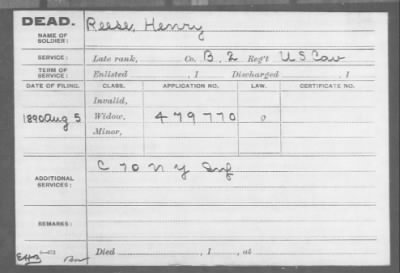 DEAD.
NAME OF SOLDIER:
Reese, Henry
SERVICE:
Late rank, Co. B, 2 Reg't U S Cav
TERM OF SERVICE:
Enlisted , 1 Discharged , 1
DATE OF FILING. CLASS. APPLICATION NO. LAW. CERTIFICATE NO.
Invalid,
1890 Aug 5 Widow, 479770
Minor,
ADDITIONAL SERVICES:
C 70 N Y Inf
REMARKS:
Died , 1 , at